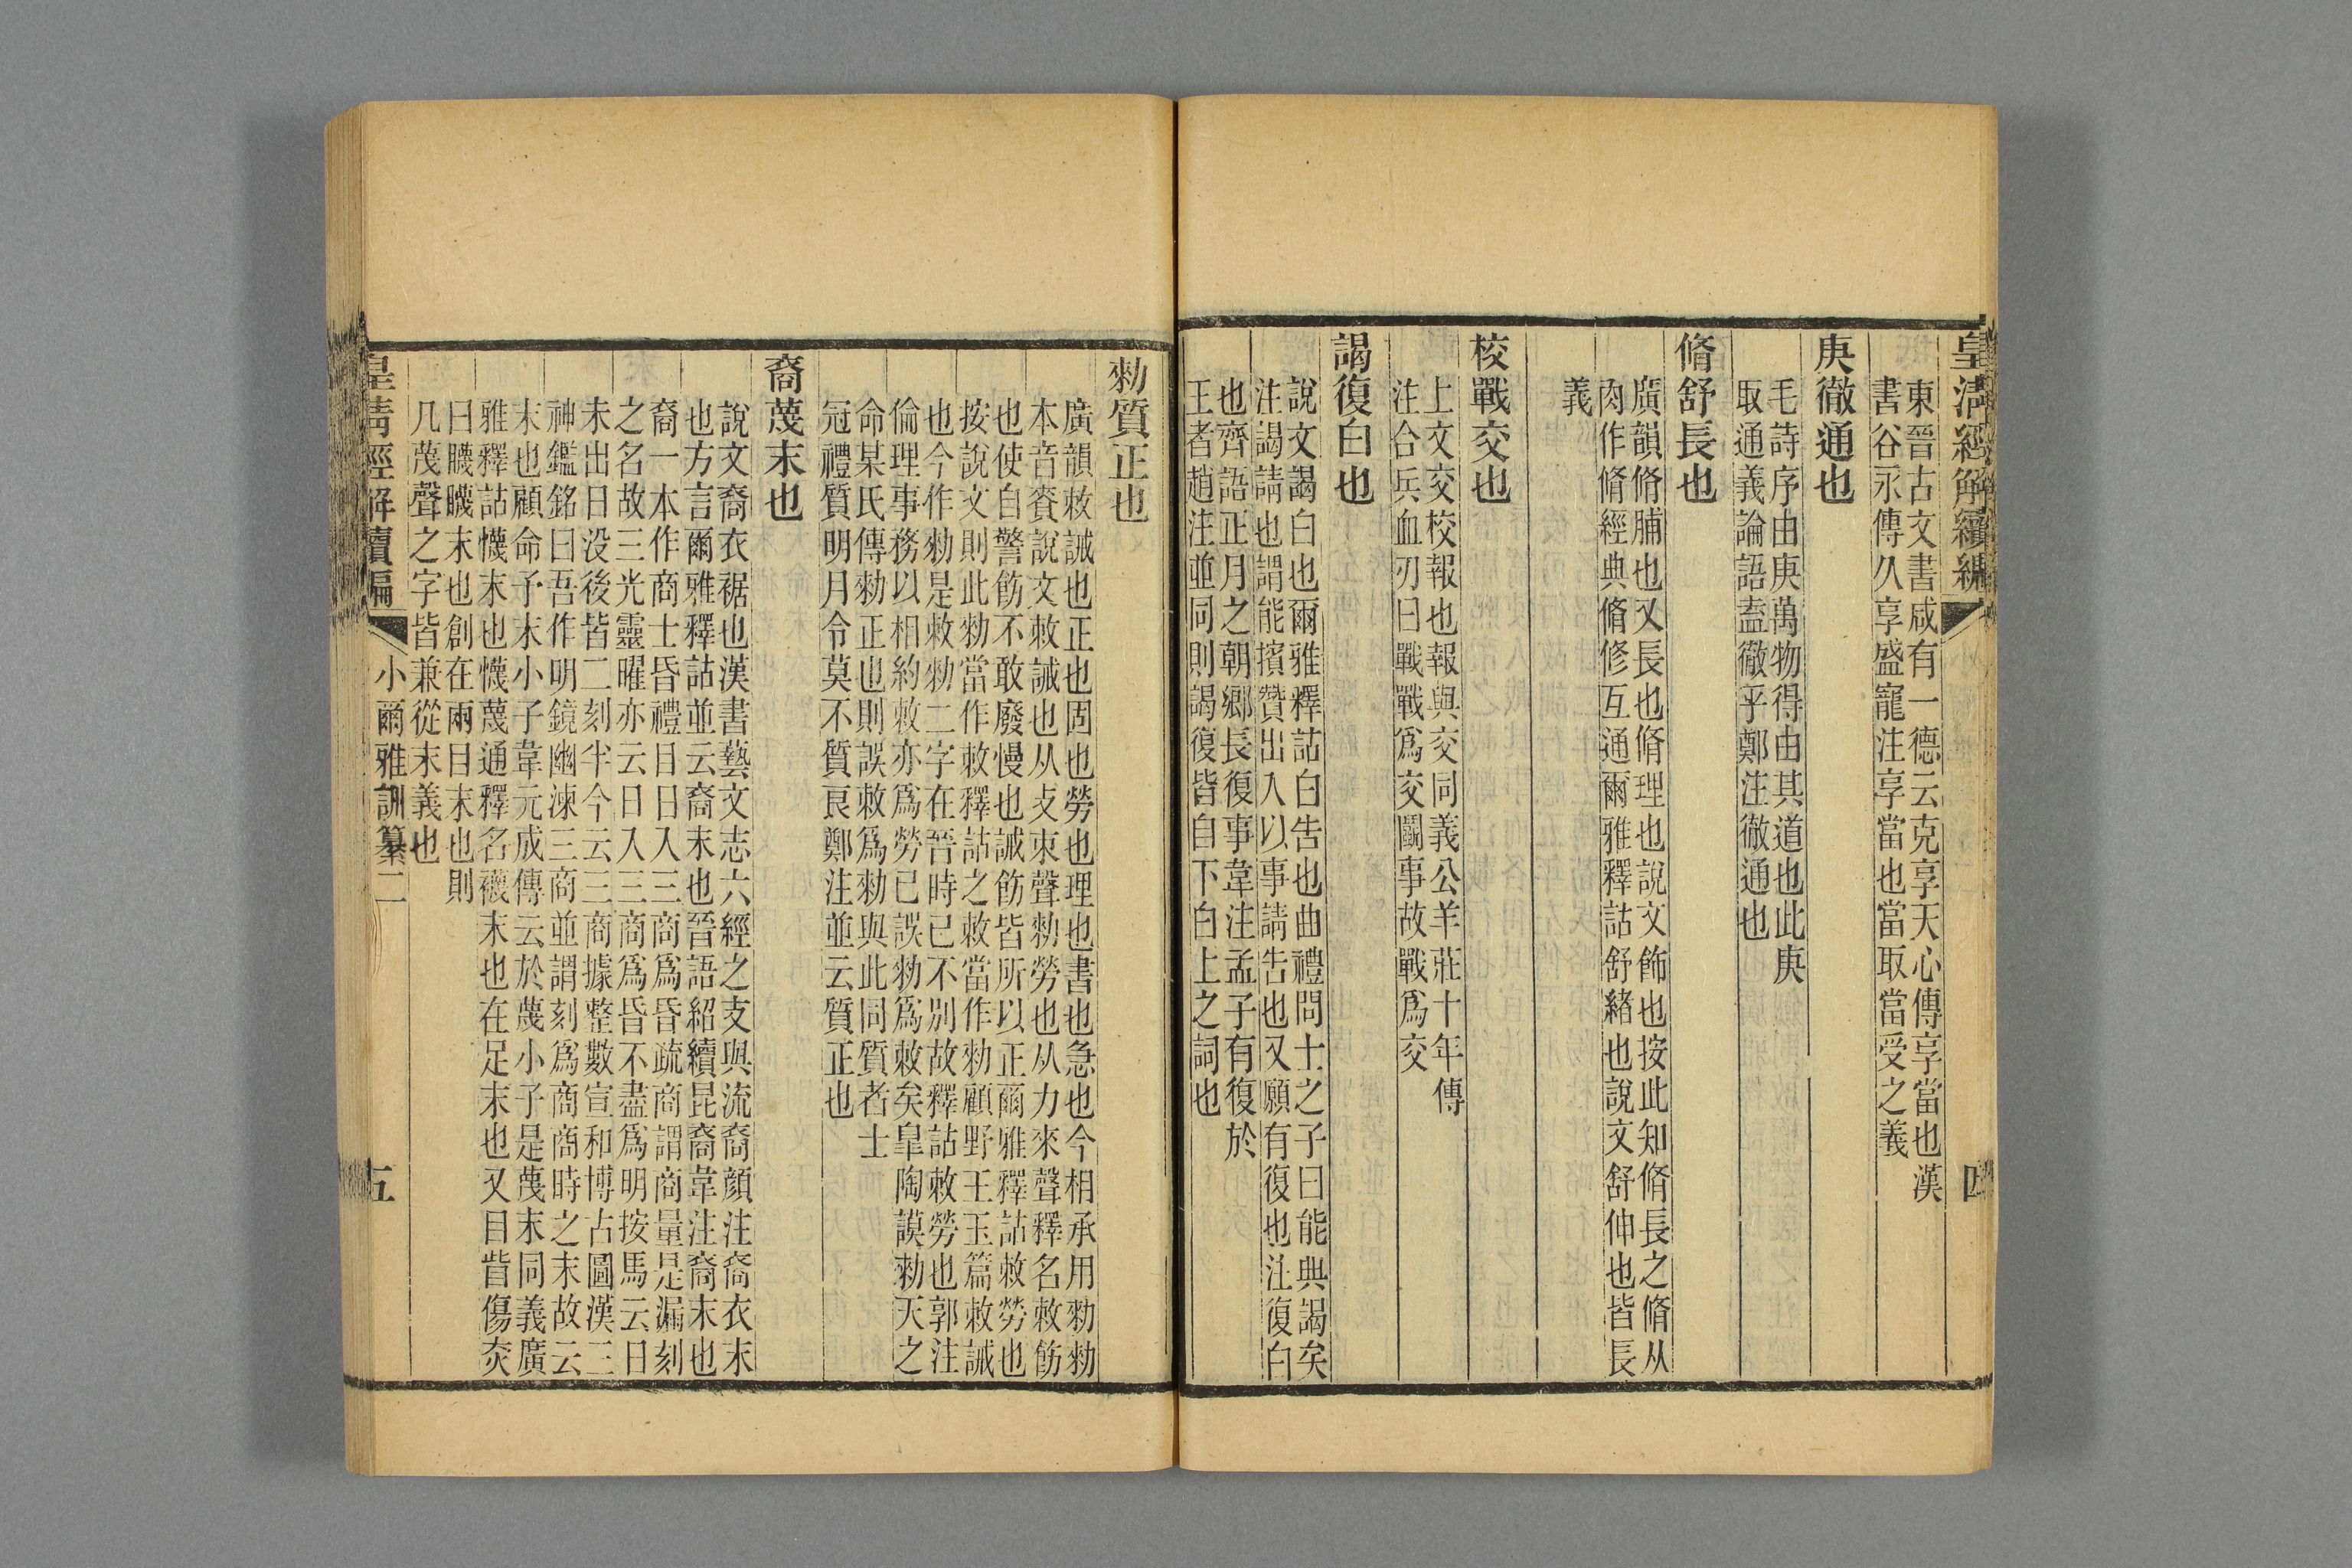 皇清經解續編
四
東晉古文書咸有一德云克享天心傳享當也漢
書谷永傳久享盛寵注享當也當取當受之義
庚徹通也
毛詩序由庚萬物得由其道也此庚
取通義論語盍徹乎鄭注徹通也
脩舒長也
廣韻脩脯也又長也脩理也說文飾也按此知脩長之脩从
肉作脩經典脩修互通爾雅釋詁舒緒也說文舒伸也皆長
義
校戰交也
上文交校報也報與交同義公羊莊十年傳
注合兵血刃曰戰戰爲交鬭事故戰爲交
謁復白也
說文謁白也爾雅釋詁白告也曲禮問士之子曰能典謁矣
注謁請也謂能擯贊出入以事請告也又願有復也注復白
也齊語正月之朝鄉長復事韋注孟子有復於
王者趙注並同則謁復皆自下白上之詞也
勑質正也
廣韻敕誡也正也固也勞也理也書也急也今相承用勑勑
本音賚說文敕誡也从攴束聲勑勞也从力來聲釋名敕飭
也使自警飭不敢廢慢也誡飭皆所以正爾雅釋詁敕勞也
按說文則此勑當作敕釋詁之敕當作勑顧野王玉篇敕誡
也今作勑是敕勑二字在晉時已不別故釋詁敕勞也郭注
倫理事務以相約敕亦爲勞已誤勑爲敕矣皐陶謨勑天之
命某氏傳勑正也則誤敕爲勑與此同質者士
冠禮質明月令莫不質良鄭注並云質正也
裔蔑末也
說文裔衣裾也漢書藝文志六經之支與流裔顏注裔衣末
也方言爾雅釋詁並云裔末也晉語紹續昆裔韋注裔末也
裔一本作商士昏禮目日入三商爲昏疏商謂商量是漏刻
之名故三光靈曜亦云日入三商爲昏不盡爲明按馬云日
未出日没後皆二刻半今云三商據整數宣和博古圖漢三
神鑑銘曰吾作明鏡幽湅三商並謂刻爲商商時之末故云
末也顧命予末小子韋元成傳云於蔑小子是蔑末同義廣
雅釋詁懱末也懱蔑通釋名襪末也在足末也又目眥傷灾
曰䁾䁾末也創在兩目末也則
凡蔑聲之字皆兼從末義也
皇淸經解續編
小爾雅訓纂二
五